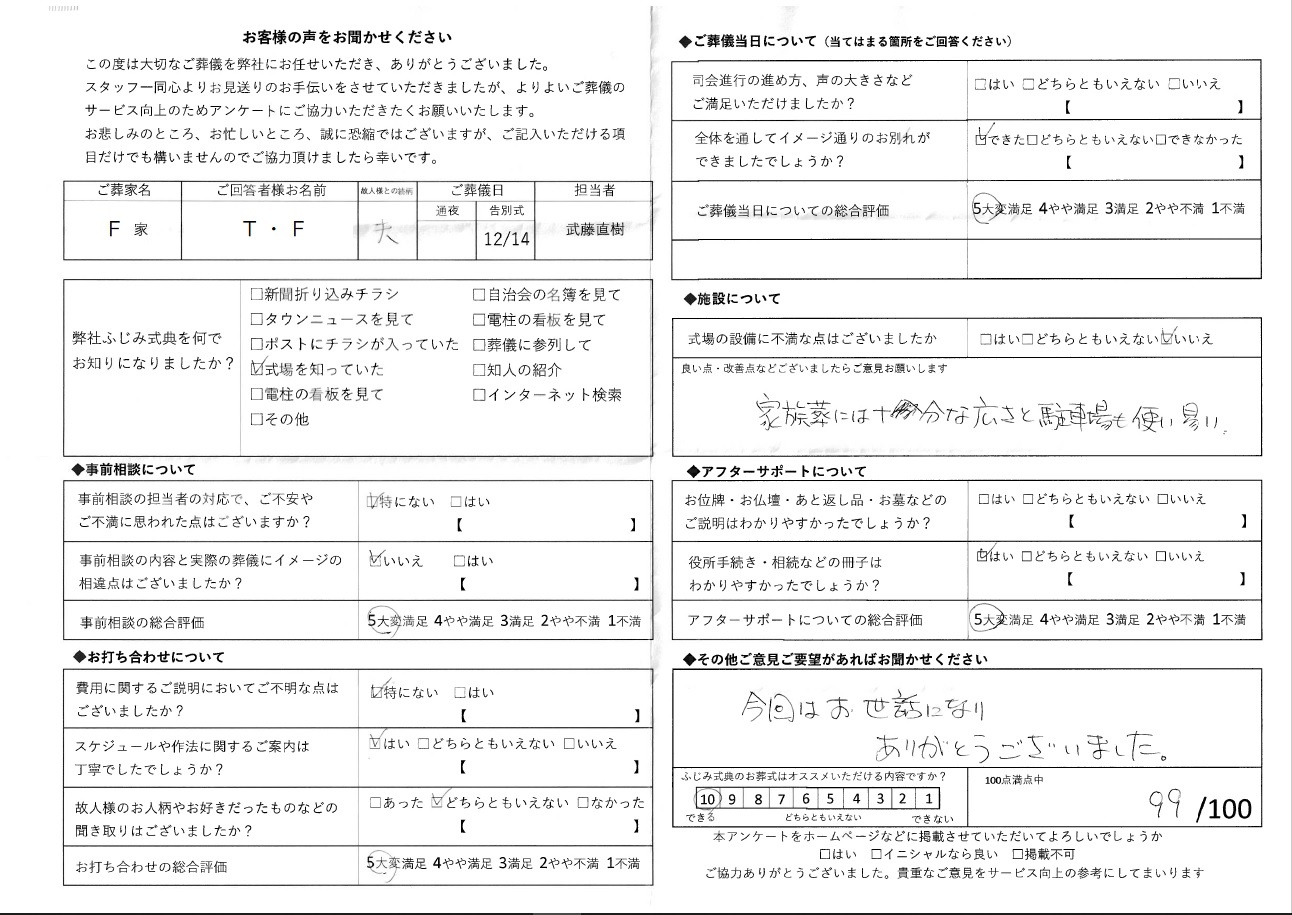 お客様の声をお聞かせください
この度は大切なご葬儀を弊社にお任せいただき、ありがとうございました。
スタッフ一同心よりお見送りのお手伝いをさせていただきましたが、よりよいご葬儀の
サービス向上のためアンケートにご協力いただきたくお願いいたします。
お悲しみのところ、お忙しいところ、誠に恐縮ではございますが、ご記入いただける項
目だけでも構いませんのでご協力頂けましたら幸いです。
ご葬家名 ご回答者様お名前 故人様との続柄 ご葬儀日 担当者
通夜 告別式
F 家 T・F 夫 12/14 武藤直樹
弊社ふじみ式典を何で
お知りになりましたか?
□新聞折り込みチラシ □自治会の名簿を見て
□タウンニュースを見て □電柱の看板を見て
□ポストにチラシが入っていた □葬儀に参列して
☑式場を知っていた □知人の紹介
□電柱の看板を見て □インターネット検索
□その他
◆事前相談について
事前相談の担当者の対応で、ご不安や
ご不満に思われた点はございますか?
☑特にない □はい
【 】
事前相談の内容と実際の葬儀にイメージの
相違点はございましたか?
☑いいえ □はい
【 】
事前相談の総合評価 5大変満足 4やや満足 3満足 2やや不満 1不満
◆お打ち合わせについて
費用に関するご説明においてご不明な点は
ございましたか?
☑特にない □はい
【 】
スケジュールや作法に関するご案内は
丁寧でしたでしょうか?
☑はい □どちらともいえない □いいえ
【 】
故人様のお人柄やお好きだったものなどの
聞き取りはございましたか?
□あった ☑どちらともいえない □なかった
【 】
お打ち合わせの総合評価 5大変満足 4やや満足 3満足 2やや不満 1不満
◆ご葬儀当日について(当てはまる箇所をご回答ください)
司会進行の進め方、声の大きさなど
ご満足いただけましたか?
□はい □どちらともいえない □いいえ
【 】
全体を通してイメージ通りのお別れが
できましたでしょうか?
☑できた□どちらともいえない□できなかった
【 】
ご葬儀当日についての総合評価 5大変満足 4やや満足 3満足 2やや不満 1不満
◆施設について
式場の設備に不満な点はございましたか □はい□どちらともいえない☑いいえ
良い点・改善点などございましたらご意見お願いします
家族葬には十分な広さと駐車場も使い易い.
◆アフターサポートについて
お位牌・お仏壇・あと返し品・お墓などの
ご説明はわかりやすかったでしょうか?
□はい □どちらともいえない □いいえ
【 】
役所手続き・相続などの冊子は
わかりやすかったでしょうか?
☑はい □どちらともいえない □いいえ
【 】
アフターサポートについての総合評価 5大変満足 4やや満足 3満足 2やや不満 1不満
◆その他ご意見ご要望があればお聞かせください
今回はお世話になり
ありがとうございました。
ふじみ式典のお葬式はオススメいただける内容ですか?
10 9 8 7 6 5 4 3 2 1
できる どちらともいえない できない
100点満点中
99 /100
本アンケートをホームページなどに掲載させていただいてよろしいでしょうか
□はい □イニシャルなら良い □掲載不可
ご協力ありがとうございました。貴重なご意見をサービス向上の参考にしてまいります